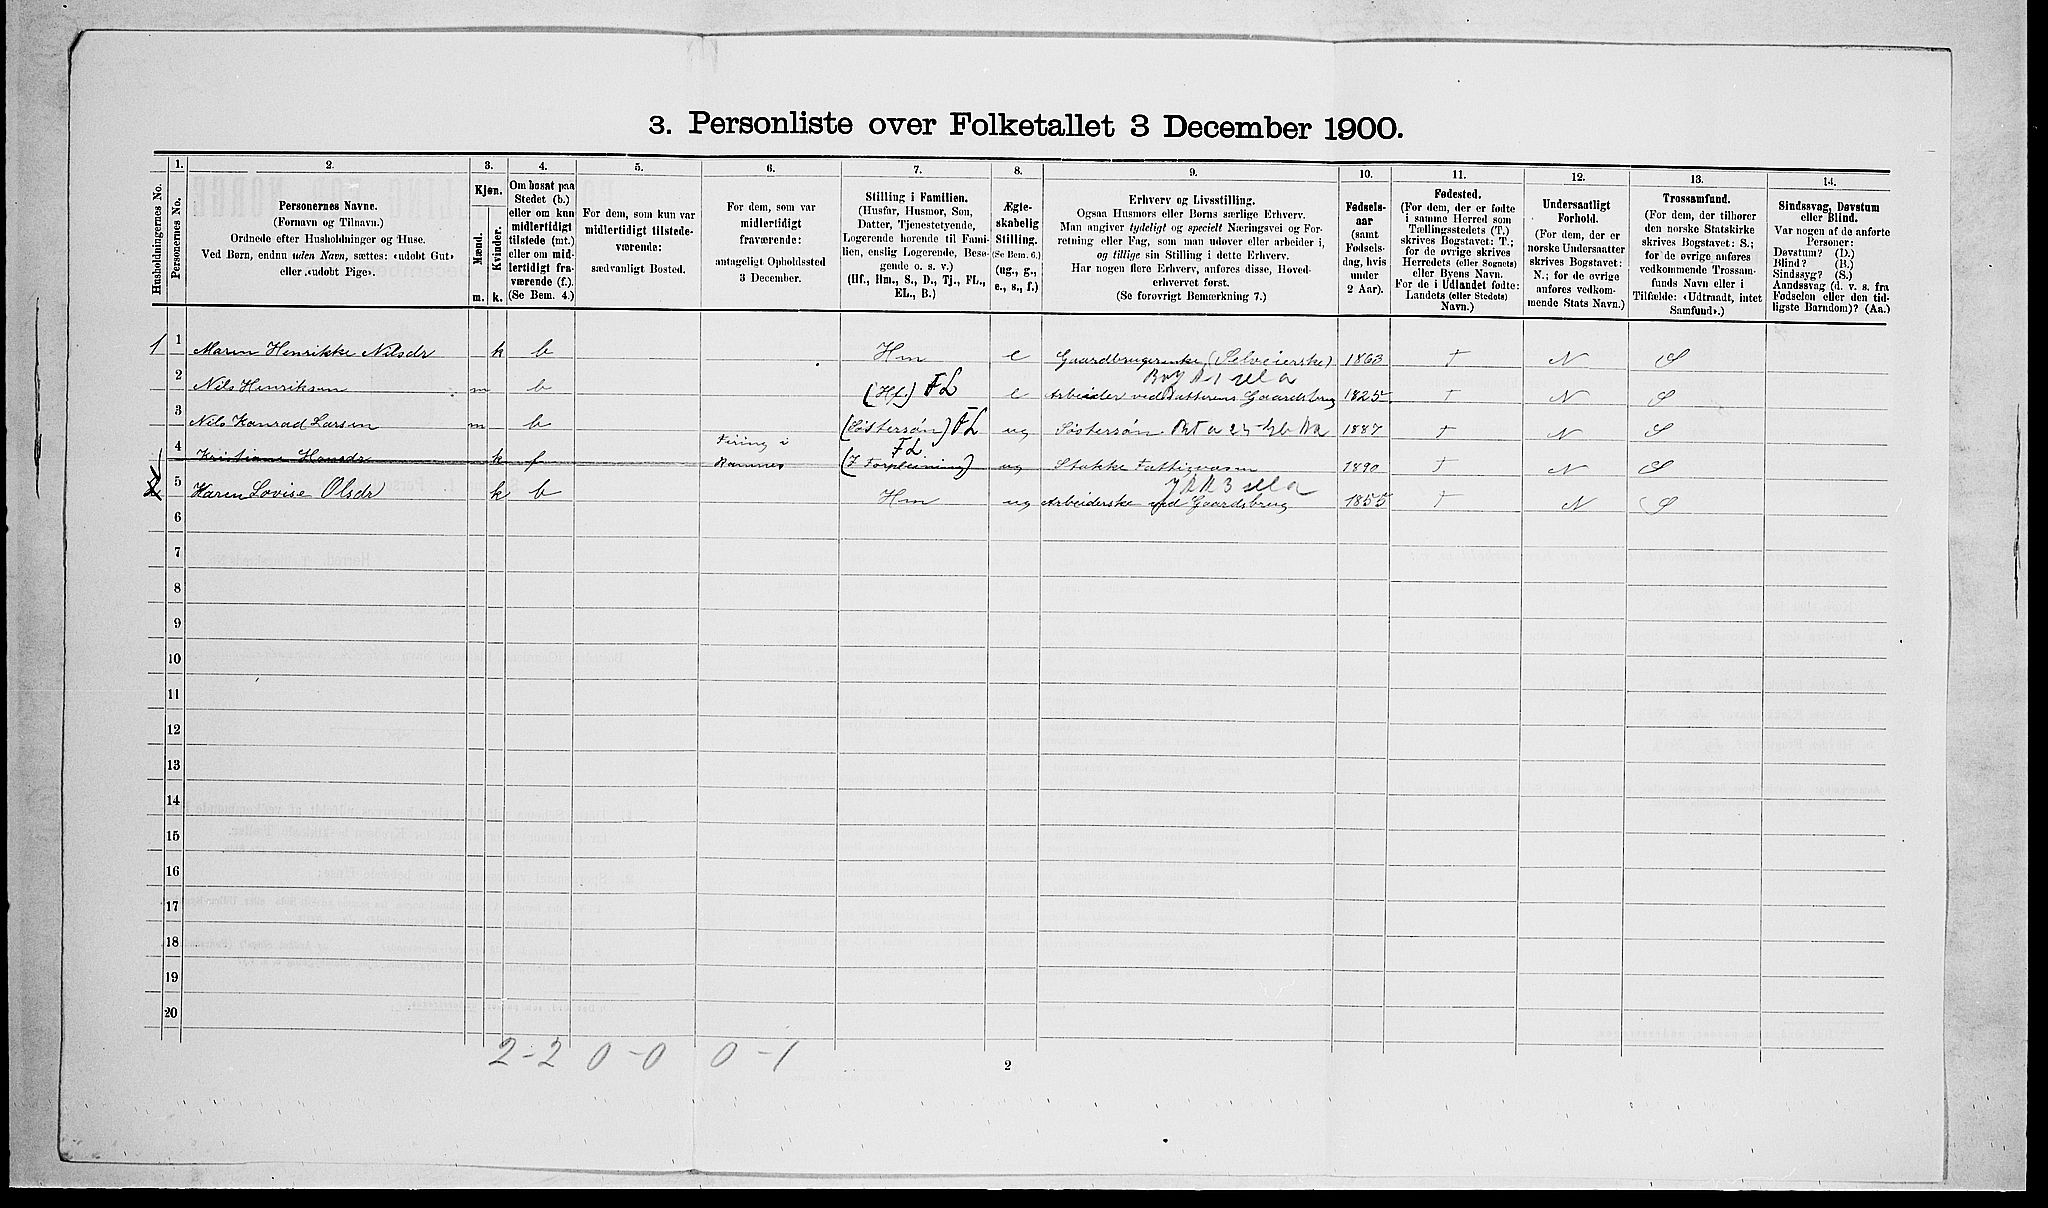 3. Personliste over Folketallet 3 December 1900.
1. 2. 3. 4. 5. 6. 7. 8. 9. 10. 11. 12. 13. 14.
Husholdningernes No.
Personernes No.
Personernes Navne.
(Fornavn og Tilnavn.)
Ordnede efter Husholdninger og Huse.
Ved Børn, endnu uden Navn, sættes: «udøbt Gut»
eller «udøbt Pige».
Kjøn.
Mænd.
Kvinder.
m. k.
Om bosat paa
Stedet (b.)
eller om kun
midlertidigt
tilstede (mt.)
eller om mid-
lertidigt fra-
værende (f.)
(Se Bem. 4.)
For dem, som kun var
midlertidigt tilstede-
værende:
sædvanligt Bosted.
For dem, som var
midlertidigt
fraværende:
antageligt Opholdssted
3 December.
Stilling i Familien.
(Husfar, Husmor, Søn,
Datter, Tjenestetyende,
Logerende hørende til Fami-
lien, enslig Logerende, Besø-
gende o. s. v.)
(Hf., Hm., S., D., Tj., FL.,
EL., B.)
Ægte-
skabelig
Stilling.
(Se Bem. 6.)
(ug., g.,
e., s., f.)
Erhverv og Livsstilling.
Ogsaa Husmors eller Børns særlige Erhverv.
Man angiver tydeligt og specielt Næringsvei og For-
retning eller Fag, som man udøver eller arbeider i,
og tillige sin Stilling i dette Erhverv.
Har nogen flere Erhverv, anføres disse, Hoved-
erhvervet først.
(Se forøvrigt Bemærkning 7.)
Fødsels-
aar
(samt
Fødsels-
dag, hvis
under
2 Aar).
Fødested.
(For dem, der er fødte
i samme Herred som
Tællingsstedets (T.)
skrives Bogstavet: T.;
for de øvrige skrives
Herredets (eller Sognets)
eller Byens Navn.
For de i Udlandet fødte:
Landets (eller Stedets)
Navn.)
Undersaatligt
Forhold.
(For dem, der er
norske Undersaatter
skrives Bogstavet:
N.; for de øvrige
anføres vedkom-
mende Stats Navn.)
Trossamfund.
(For dem, der tilhører
den norske Statskirke
skrives Bogstavet: S.;
for de øvrige anføres
vedkommende Trossam-
funds Navn eller i
Tilfælde: «Udtraadt, intet
Samfund».)
Sindssvag, Døvstum
eller Blind.
Var nogen af de anførte
Personer:
Døvstum? (D.)
Blind? (B.)
Sindssyg? (S.)
Aandssvag (d. v. s. fra
Fødselen eller den tid-
ligste Barndom)? (Aa.)
1 1 Maren Henrikke Nilsdr k b Hm e Gaardbrugerenke (Selveierske) 1863 T N S
2 Nils Henriksen m b (Hf.) FL e Arbeider ved Datterens Gaardsbrug 1825 T N S
3 Nils Konrad Larsen m b (Søstersøn) FL ug Søstersøn 1887 T N S
4 Kristiane Hansdr k f Ramnes (I Forpleining) FL ug Stokke Fattigvæsen 1890 T N S
2 5 Karen Lovise Olsdr k b Hm ug Arbeiderske ved Gaardsbrug 1855 T N S
6
7
8
9
10
11
12
13
14
15
16
17
18
19
20
2-2 0-0 0-1
2